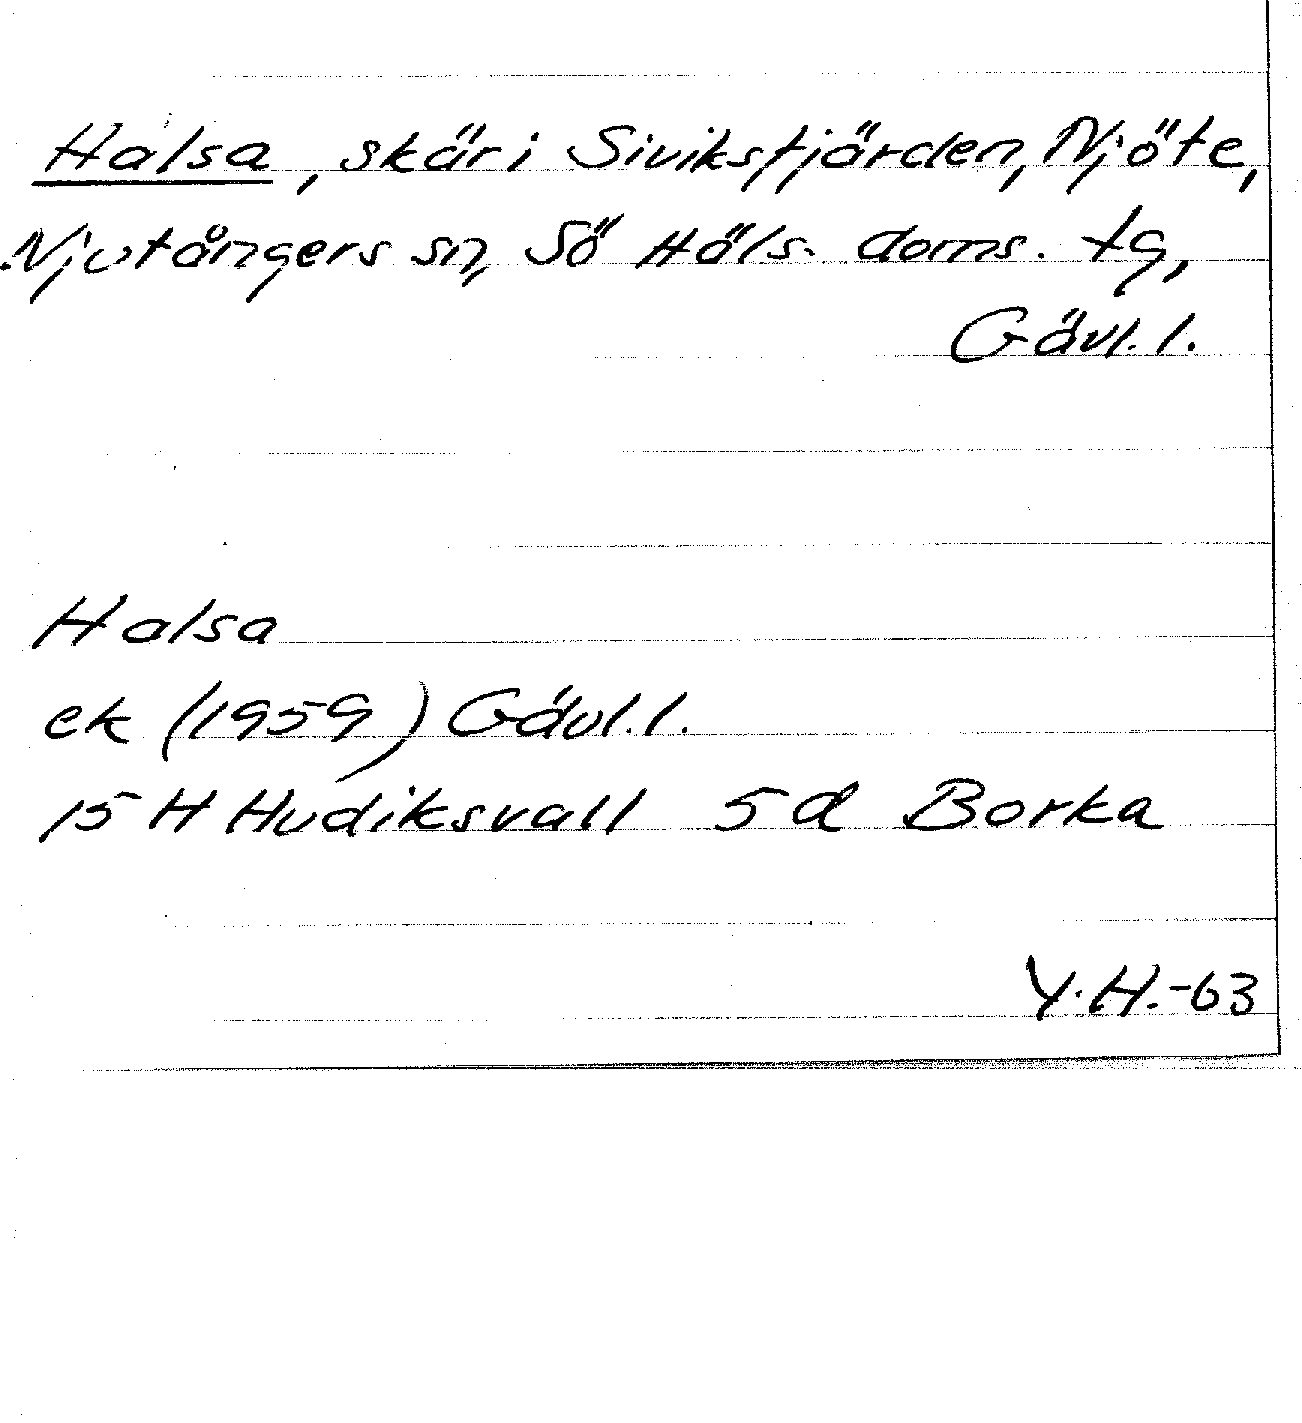 Halsa, skär i Siviksfjärden, Njöte,
Njutångers sn, Sö Häls. doms. tg,
Gävl. l.
Halsa
ek (1959) Gävl. l.
15 H Hudiksvall 5d Borka
Y.H.-63